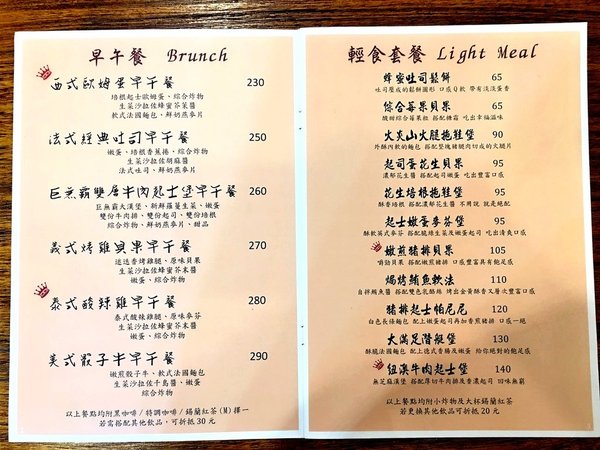 早午餐 Brunch
西式歐姆蛋早午餐 230
培根起士歐姆蛋、綜合炸物
生菜沙拉佐蜂蜜芥茉醬
軟式法國麵包、鮮奶燕麥片
法式經典吐司早午餐 250
嫩蛋、培根香蕉捲、綜合炸物
生菜沙拉佐胡麻醬
法式吐司、鮮奶燕麥片
巨無霸雙層牛肉起士堡早午餐 260
巨無霸大漢堡、新鮮蘿蔓生菜、嫩蛋
雙份牛肉排、雙份起司、雙份培根
綜合炸物、鮮奶燕麥片、甜品
義式烤雞與串早午餐 270
迷迭香烤雞腿、原味貝果
生菜沙拉佐蜂蜜芥末醬
嫩蛋、綜合炸物
泰式酸辣雞早午餐 280
泰式酸辣雞腿、原味麥芬
生菜沙拉佐蜂蜜芥末醬
嫩蛋、綜合炸物
美式骰子牛早午餐 290
嫩煎骰子牛、軟式法國麵包
生菜沙拉佐千島醬、嫩蛋
綜合炸物
以上餐點均附黑咖啡/特調咖啡/錫蘭紅茶(M)擇一
若需搭配其他飲品，可折抵30元
輕食套餐 Light Meal
蜂蜜吐司鬆餅 65
吐司壓成的鬆餅圖形 口感Q軟 帶有淡淡蛋香
綜合莓果貝果 65
酸甜綜合莓果粒 搭配糖霜 吃出幸福滋味
火炎山火腿拖鞋堡 90
外酥內軟的麵包 搭配整塊豬腿肉切成的火腿片
起司蛋花生貝果 95
濃郁花生醬 搭配起司嫩蛋 吃出豐富口感
花生培根拖鞋堡 95
酥香培根 搭配濃郁花生醬 不用說 就是絕配
起士嫩蛋麥芬堡 95
酥軟英式麥芬 搭配脆綠生菜及嫩蛋起司 吃出清爽口感
嫩煎豬排貝果 105
嚼勁貝果 搭配嫩煎豬排 口感豐富具有飽足感
焗烤鮪魚軟法 110
自拌鮪魚醬 搭配雙色乳酪絲 烤出金黃酥香又層次豐富口感
豬排起士帕尼尼 120
白色長條麵包 配上嫩蛋起司再加香煎豬排 口感一絕
大滿足潛艇堡 130
酥脆法國麵包 配上德式香腸及嫩蛋 給你絕對的飽足感
紐澳牛肉起士堡 140
無芝麻漢堡 搭配厚切牛肉排及香濃起司 回味無窮
以上餐點均附小炸物及大杯錫蘭紅茶
若更換其他飲品可折抵20元